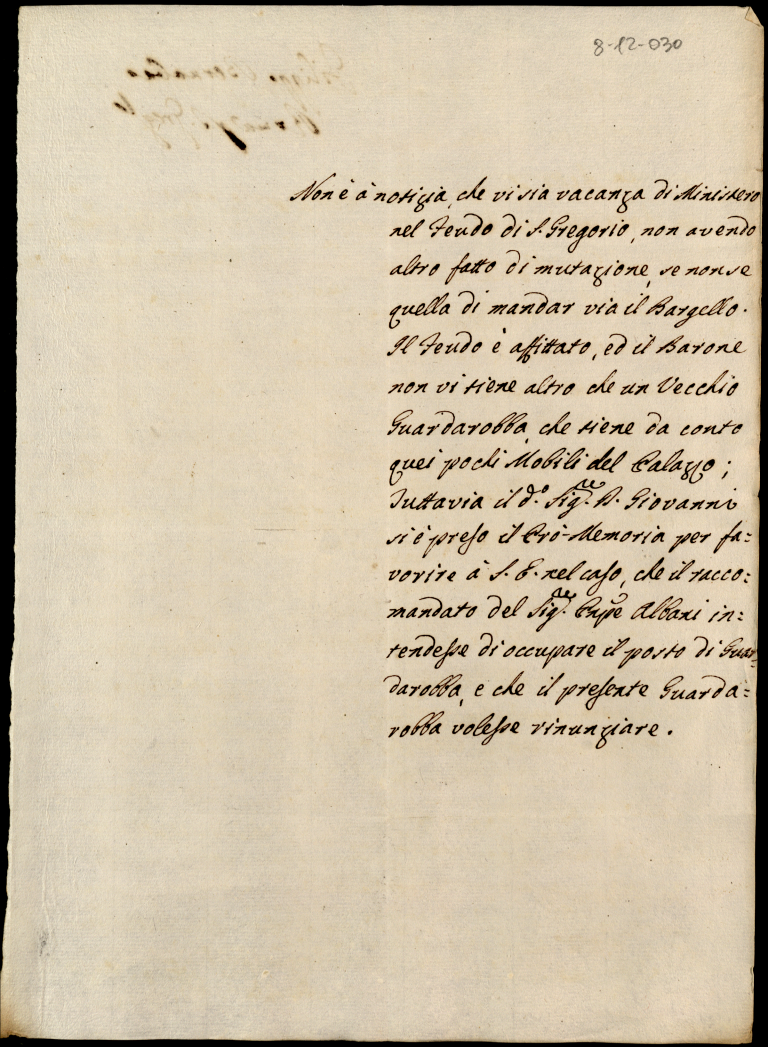 8-12-030
Non è à notizia, che vi sia vacanza di Ministero
nel Feudo di S. Gregorio, non avendo
altro fatto di mutazione, se non se
quella di mandar via il Bargello.
Il Feudo è affittato, ed il Barone
non vi tiene altro che un Vecchio
Guardarobba, che tiene da conto
quei pochi Mobili del Palazzo;
Tuttavia il d.º Sig.re D. Giovanni
si è preso il Prò-Memoria per fa=
vorire à S. E. nel caso, che il racco=
mandato del Sig.re Pnpe Albani in=
tendesse di occupare il posto di Guar=
darobba, e che il presente Guarda=
robba volesse rinunziare.